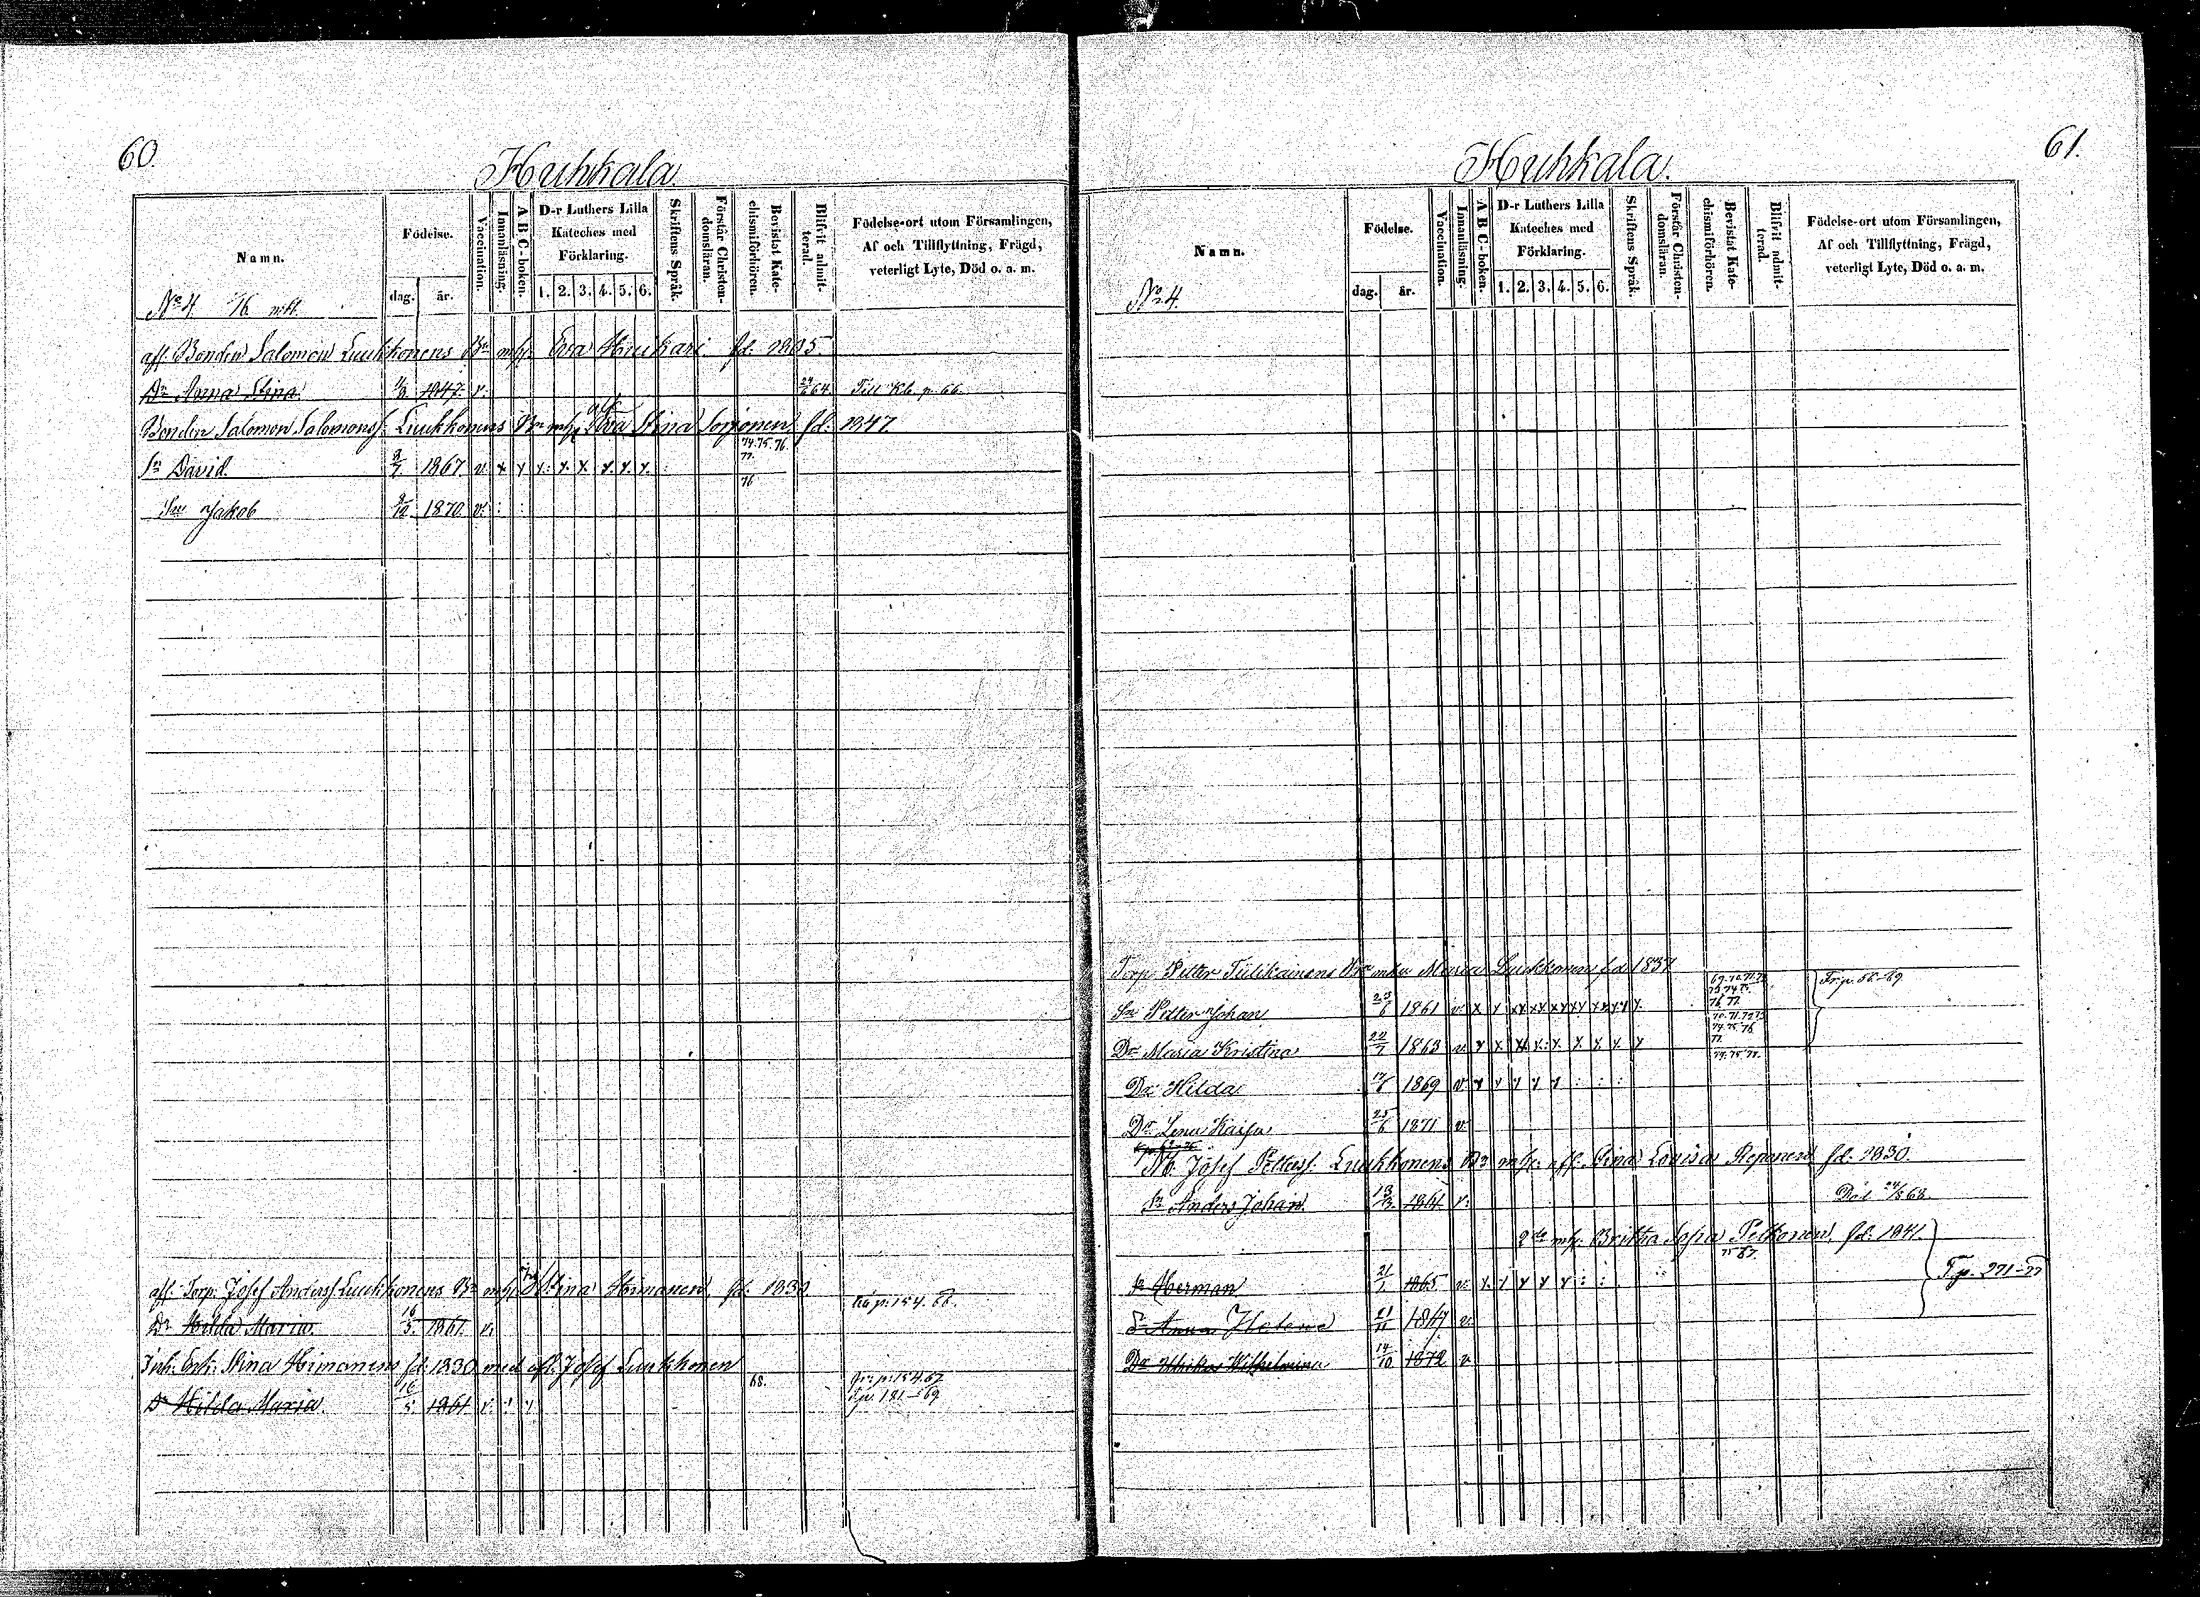 60.
Huhkala.
Namn.
Födelse.
dag.
år.
Vaccination.
Innanläsning.
A B C-boken.
D-r Luthers Lilla
Kateches med
Förklaring.
1. 2. 3. 4. 5. 6.
Skriftens Språk.
Förstår Christen-
domsläran.
Bevistat Kate-
chismiförhören.
Blifvit admit-
terad.
Födelse-ort utom Församlingen,
Af och Tillflyttning, Frägd,
veterligt Lyte, Död o. a. m.
No 4.
aff. Bonden Salomon Luukkonens Bn m/h. Eva Hiukari fd: 1805.
Dr Anna Stina 1847 v. 64. Till Kb. p. 66.
Bonden Salomon Salomonss. Luukkonens Bn m/h Eva Stina Sorjonen fd: 1847
74. 75. 76.
77.
Sn David. 1867 v. x y y. y. y. y. y. y.
76
Sn Jakob 9/10 1870 v. : :
aff. Torp. Josef Anderss. Luukkonens Bn m/h Stina Himanen fd. 1830
Dr Hilda Maria. 16/5. 1861. v.
Inh. Enk. Stina Himanens fd. 1830 med afl. Josef Luukkonen
68.
Dr Hilda Maria. 16/5 1861 v. : y
T.p. 181-69
61.
Huhkala.
Namn.
Födelse.
dag.
år.
Vaccination.
Innanläsning.
A B C-boken.
D-r Luthers Lilla
Kateches med
Förklaring.
1. 2. 3. 4. 5. 6.
Skriftens Språk.
Förstår Christen-
domsläran.
Bevistat Kate-
chismiförhören.
Blifvit admit-
terad.
Födelse-ort utom Församlingen,
Af och Tillflyttning, Frägd,
veterligt Lyte, Död o. a. m.
No 4.
Torp. Petter Tiilikainens Bn m/h Maria Luukkonen fd 1837
Sn Petter Johan 23/6 1861 v.
76. 77.
Dr Maria Kristina 22/7 1863 v.
74. 75. 76
77.
Dr Hilda 17/6 1869 v. y y y y y : : :
Dr Lena Kaisa 25/6 1871 v.
Josef Petterss. Luukkonens Bn m/h. aff. Stina Lovisa Reponen fd. 1830.
Sn Anders Johan. 1861 v. Död 24/5 68.
2dra m/h. Britha Sofia Pelkonen, fd. 1841.
Sn Herman 21/1 1865 v. T.p. 271-77
Dr Anna Helena 21/11 1867 v.
Dr Ulrika Wilhelmina 14/10 1872 v.